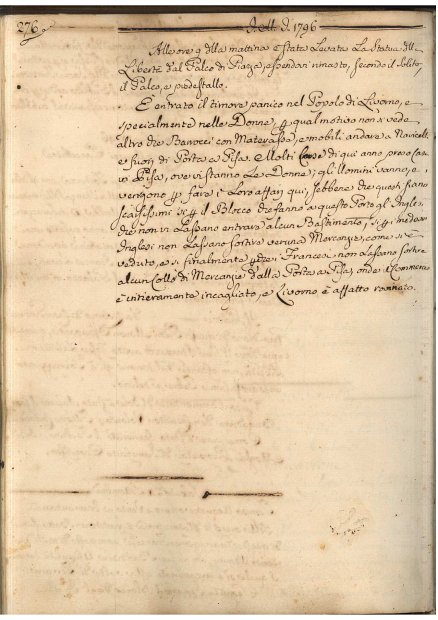 276
1796
Alle ore 9 della mattina è stata Levata La Statua della
Libertà dal Palco di Piazza, essendovi rimasto, secondo il Solito,
il Palco, e piedestallo.
È entrato il timore panico nel Popolo di Livorno, e
specialmente nelle Donne, qual motivo non si vede
altro che Barocci con Materassi, e mobili andare a Navicelli,
e fuori di Porta a Pisa. Molti di qui anno preso Casa
in Pisa, ove vi stanno Le Donne; gli Uomini vanno, e
vengono p fare i Loro affari qui, sebbene che questi siano
scarsissimi sì p il Blocco che fanno a questo Porto gl' Inglesi,
che non vi Lassano entrare alcun Bastimento, sì p
Inglesi non Lassano sortire veruna Mercanzia, come si è
veduto, e sì finalmente i Francesi non Lassano sortire
alcun Collo di Mercanzie dalla Porta a Pisa, onde il Commercio
è intieramente incagliato, e Livorno è affatto rovinato.